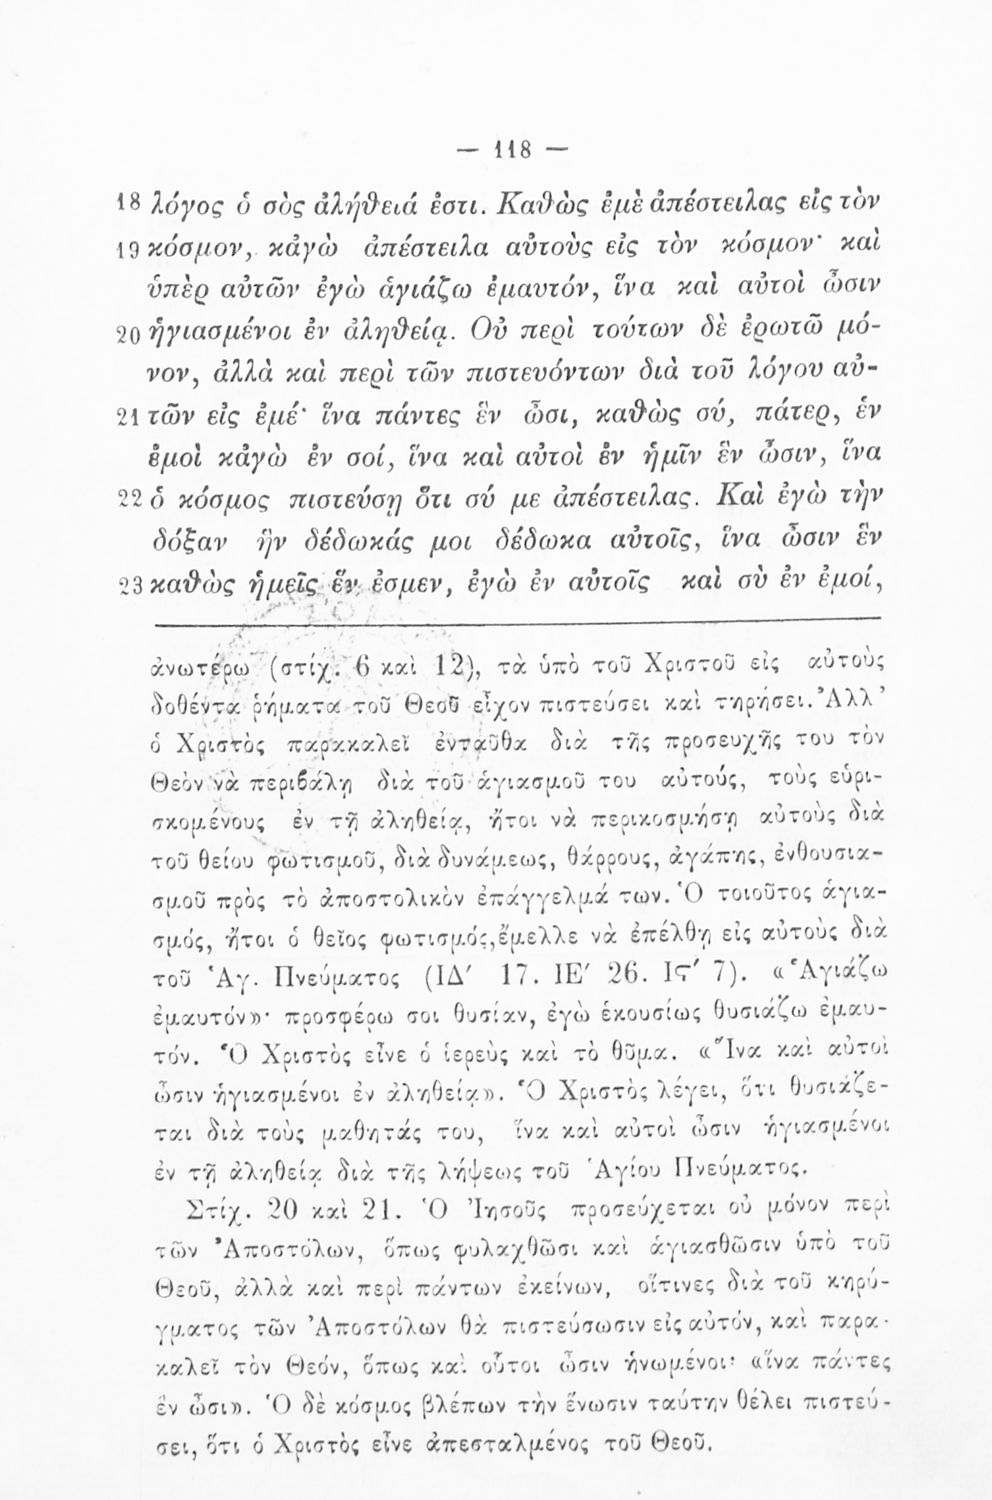 — 118 —
18 λόγος ὁ σὸς ἀλήθειά ἐστι. Καθὼς ἐμὲ ἀπέστειλας εἰς τὸν
19 κόσμον, κἀγὼ ἀπέστειλα αὐτοὺς εἰς τὸν κόσμον· καὶ
ὑπὲρ αὐτῶν ἐγὼ ἁγιάζω ἐμαυτόν, ἵνα καὶ αὐτοὶ ὦσιν
20 ἡγιασμένοι ἐν ἀληθείᾳ. Οὐ περὶ τούτων δὲ ἐρωτῶ μό-
νον, ἀλλὰ καὶ περὶ τῶν πιστευόντων διὰ τοῦ λόγου αὐ-
21 τῶν εἰς ἐμέ· ἵνα πάντες ἓν ὦσι, καθὼς σύ, πάτερ, ἐν
ἐμοὶ κἀγὼ ἐν σοί, ἵνα καὶ αὐτοὶ ἐν ἡμῖν ἓν ὦσιν, ἵνα
22 ὁ κόσμος πιστεύσῃ ὅτι σύ με ἀπέστειλας. Καὶ ἐγὼ τὴν
δόξαν ἣν δέδωκάς μοι δέδωκα αὐτοῖς, ἵνα ὦσιν ἓν
23 καθὼς ἡμεῖς ἕν ἐσμεν, ἐγὼ ἐν αὐτοῖς καὶ σὺ ἐν ἐμοί,
ἀνωτέρω (στίχ. 6 καὶ 12), τὰ ὑπὸ τοῦ Χριστοῦ εἰς αὐτοὺς
δοθέντα ῥήματα τοῦ Θεοῦ εἶχον πιστεύσει καὶ τηρήσει. Ἀλλ'
ὁ Χριστὸς παρακαλεῖ ἐνταῦθα διὰ τῆς προσευχῆς του τὸν
Θεὸν νὰ περιβάλῃ διὰ τοῦ ἁγιασμοῦ του αὐτούς, τοὺς εὑρι-
σκομένους ἐν τῇ ἀληθείᾳ, ἤτοι νὰ περικοσμήσῃ αὐτοὺς διὰ
τοῦ θείου φωτισμοῦ, διὰ δυνάμεως, θάρρους, ἀγάπης, ἐνθουσια-
σμοῦ πρὸς τὸ ἀποστολικὸν ἐπάγγελμά των. Ὁ τοιοῦτος ἁγια-
σμός, ἤτοι ὁ θεῖος φωτισμός, ἔμελλε νὰ ἐπέλθῃ εἰς αὐτοὺς διὰ
τοῦ Ἁγ. Πνεύματος (ΙΔ′ 17. ΙΕ′ 26. Ιϛ′ 7). «Ἁγιάζω
ἐμαυτόν»· προσφέρω σοι θυσίαν, ἐγὼ ἑκουσίως θυσιάζω ἐμαυ-
τόν. Ὁ Χριστὸς εἶνε ὁ ἱερεὺς καὶ τὸ θῦμα. «Ἵνα καὶ αὐτοὶ
ὦσιν ἡγιασμένοι ἐν ἀληθείᾳ». Ὁ Χριστὸς λέγει, ὅτι θυσιάζε-
ται διὰ τοὺς μαθητάς του, ἵνα καὶ αὐτοὶ ὦσιν ἡγιασμένοι
ἐν τῇ ἀληθείᾳ διὰ τῆς λήψεως τοῦ Ἁγίου Πνεύματος.
Στίχ. 20 καὶ 21. Ὁ Ἰησοῦς προσεύχεται οὐ μόνον περὶ
τῶν Ἀποστόλων, ὅπως φυλαχθῶσι καὶ ἁγιασθῶσιν ὑπὸ τοῦ
Θεοῦ, ἀλλὰ καὶ περὶ πάντων ἐκείνων, οἵτινες διὰ τοῦ κηρύ-
γματος τῶν Ἀποστόλων θὰ πιστεύσωσιν εἰς αὐτόν, καὶ παρα-
καλεῖ τὸν Θεόν, ὅπως καὶ οὗτοι ὦσιν ἡνωμένοι· «ἵνα πάντες
ἓν ὦσι». Ὁ δὲ κόσμος βλέπων τὴν ἕνωσιν ταύτην θέλει πιστεύ-
σει, ὅτι ὁ Χριστὸς εἶνε ἀπεσταλμένος τοῦ Θεοῦ.